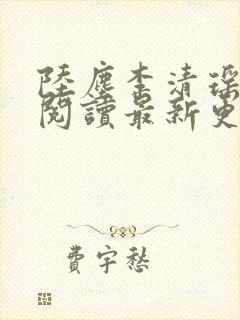 陸塵李清瑤
閱讀最新更
費宇愁